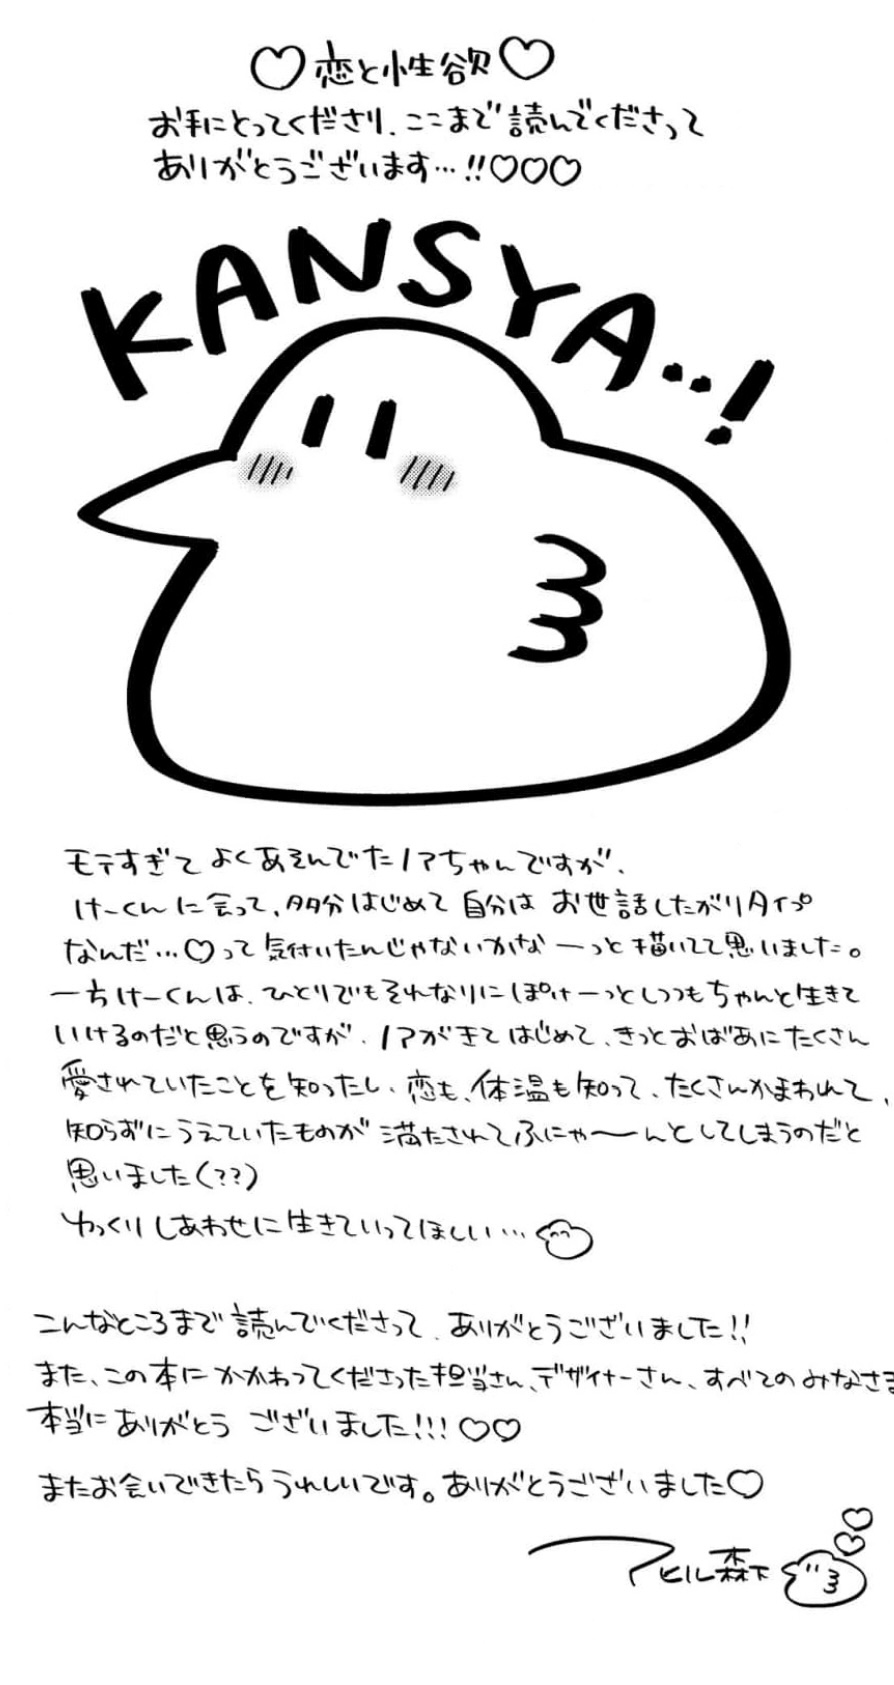 ♡恋と小生欲♡
お手にとってくださり、ここまで読んでくださって
ありがとうございます…!!♡♡♡
KANSYA..!
モテすぎてよくあそんでたノアちゃんですが、
けーくんに会って、多分はじめて自分はお世話したがりタイプ
なんだ…♡って気付いたんじゃないかなーっと描いてて思いました。
一方けーくんは、ひとりでもそれなりにぽけーっとしつつもちゃんと生きて
いけるのだと思うのですが、ノアがきてはじめて、きっとおばあにたくさん
愛されていたことを知ったし、恋も、体温も知って、たくさんかまわれて、
知らずにうえていたものが満たされてふにゃ〜んとしてしまうのだと
思いました(??)
ゆっくりしあわせに生きていってほしい…
こんなところまで読んでくださって、ありがとうございました!!
また、この本にかかわってくださった担当さん、デザイナーさん、すべてのみなさま
本当にありがとうございました!!!♡♡
またお会いできたらうれしいです。ありがとうございました♡
アヒル森下